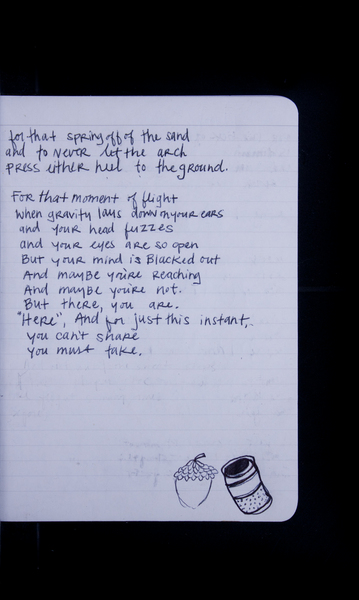 for that spring off of the sand
and to never let the arch
press either heel to the ground.
For that moment of flight
when gravity lays down on your ears
and your head fuzzes
and your eyes are so open
But your mind is Blacked out
And maybe you're reaching
And maybe you're not.
But there, you are.
"Here", And for just this instant,
you can't share
you must take.